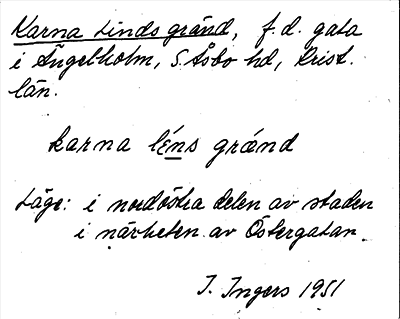 Karna Linds gränd, f.d. gata
i Ängelholm, S. Åsbo hd, Krist.
län.
karna léns grænd
Läge: i nordöstra delen av staden
i närheten av Östergatan.
I. Ingers 1951